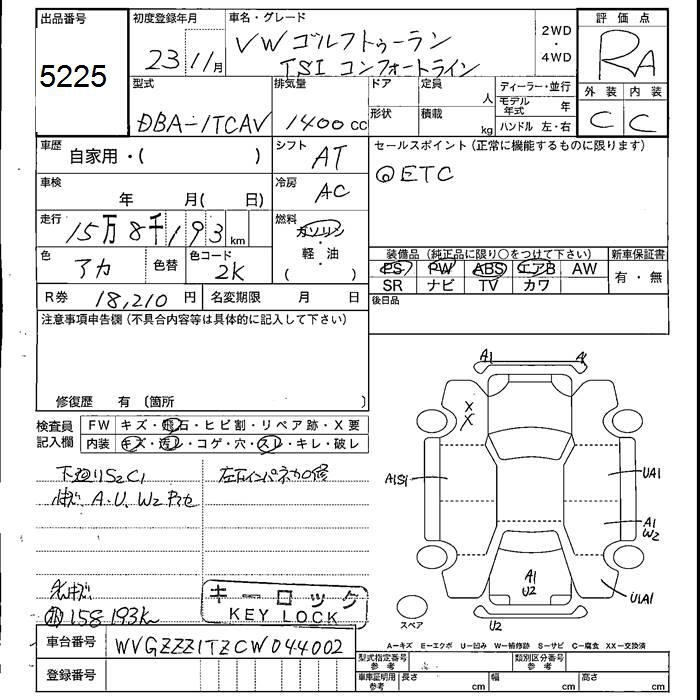 出品番号
5225
初度登録年月
23 11月
車名・グレード
VW ゴルフトゥーラン
TSI コンフォートライン
2WD
・
4WD
評価点
RA
外装 内装
C C
型式
DBA-1TCAV
排気量
1400cc
ドア 定員
人
形状 積載
kg
ディーラー・並行
モデル年式 年
ハンドル 左・右
車歴
自家用・( )
シフト
AT
セールスポイント(正常に機能するものに限ります)
◎ETC
車検
年 月( 日)
冷房
AC
走行
15万8千193km
燃料
ガソリン
・
軽・油
( )
色
アカ
色替
色コード
2K
装備品(純正品に限り○をつけて下さい)
PS PW ABS エアB AW
SR ナビ TV カワ
新車保証書
有・無
R券 18,210円
名変期限 月 日
後日品
注意事項申告欄(不具合内容等は具体的に記入して下さい)
修復歴 有〔箇所 〕
検査員
記入欄
FW キズ・飛石・ヒビ割・リペア跡・X要
内装 キズ・汚レ・コゲ・穴・スレ・キレ・破レ
下廻りS2C1
A・U、W2
左右インパネカロ修
158193km
キーロック
KEY LOCK
A1
A
XX
A1S1
UA1
A1
W2
A1
U2
U1A1
スペア
U2
A-キズ E-エクボ U-凹み W-補修跡 S-サビ C-腐食 XX-交換済
車台番号 WVGZZZ1TZCW044002
登録番号
型式指定番号
参考
類別区分番号
参考
車庫証明用
参考
長さ cm 幅 cm 高さ cm